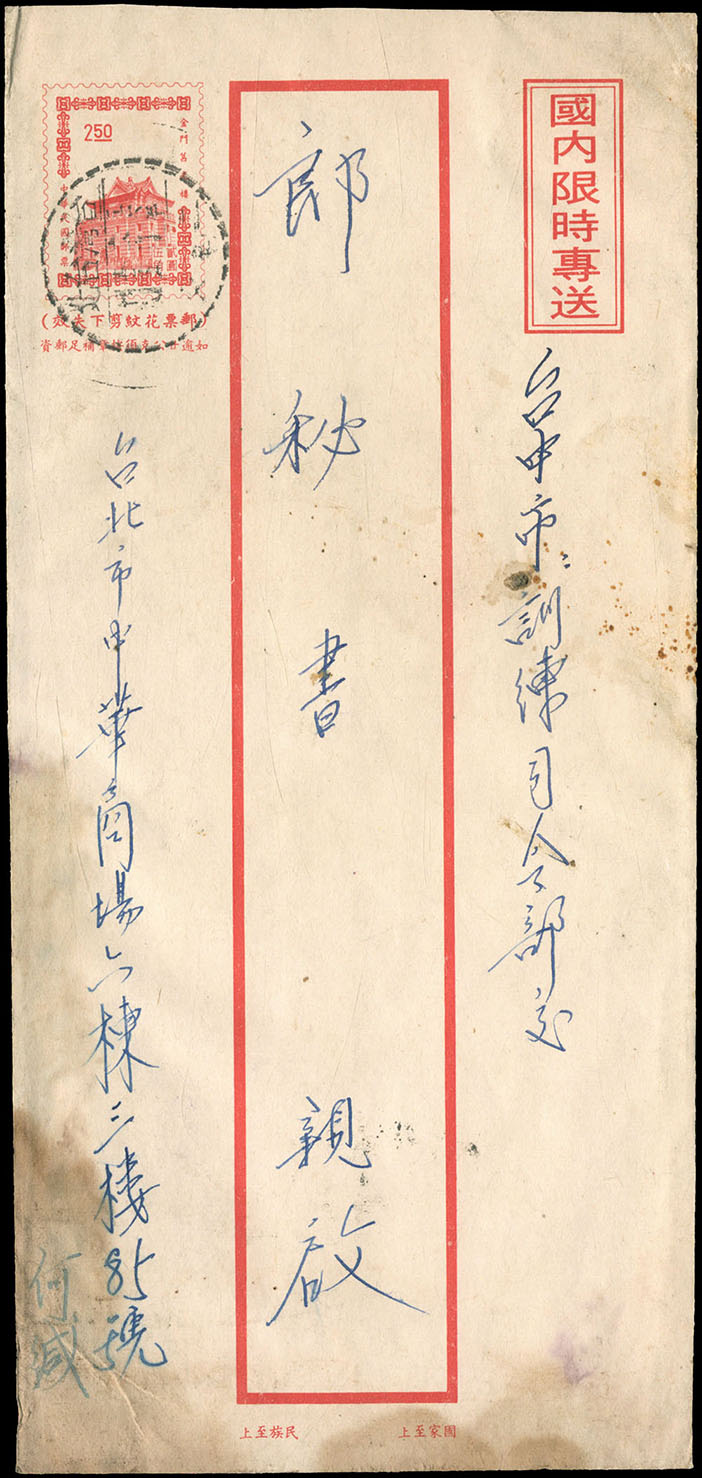 國內限時專送
台中市：訓練司令部交
郎
秘
書
親
啟
2.50
金門莒 樓
中華民國郵票
(郵票花紋剪下失效)
補足郵資
台北市中華商場六棟三樓85號
何
國家至上
民族至上